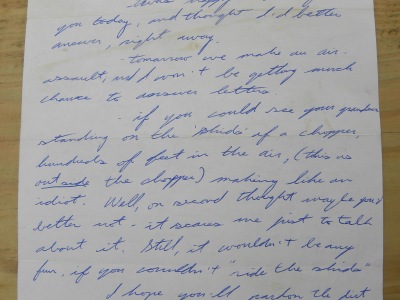 you today, and thought I'd better
answer, right away.
- tomorrow we make an air-
assault, and won't be getting much
chance to answer letters.
- if you could see your grandson
standing on the 'skids' of a chopper,
hundreds of feet in the air, (this is
outside the chopper) making like an
idiot. Well, on second thought maybe you'd
better not - it scares me just to talk
about it. Still, it wouldn't be any
fun, if you couldn't "ride the skids"
I hope you'll pardon the dirt